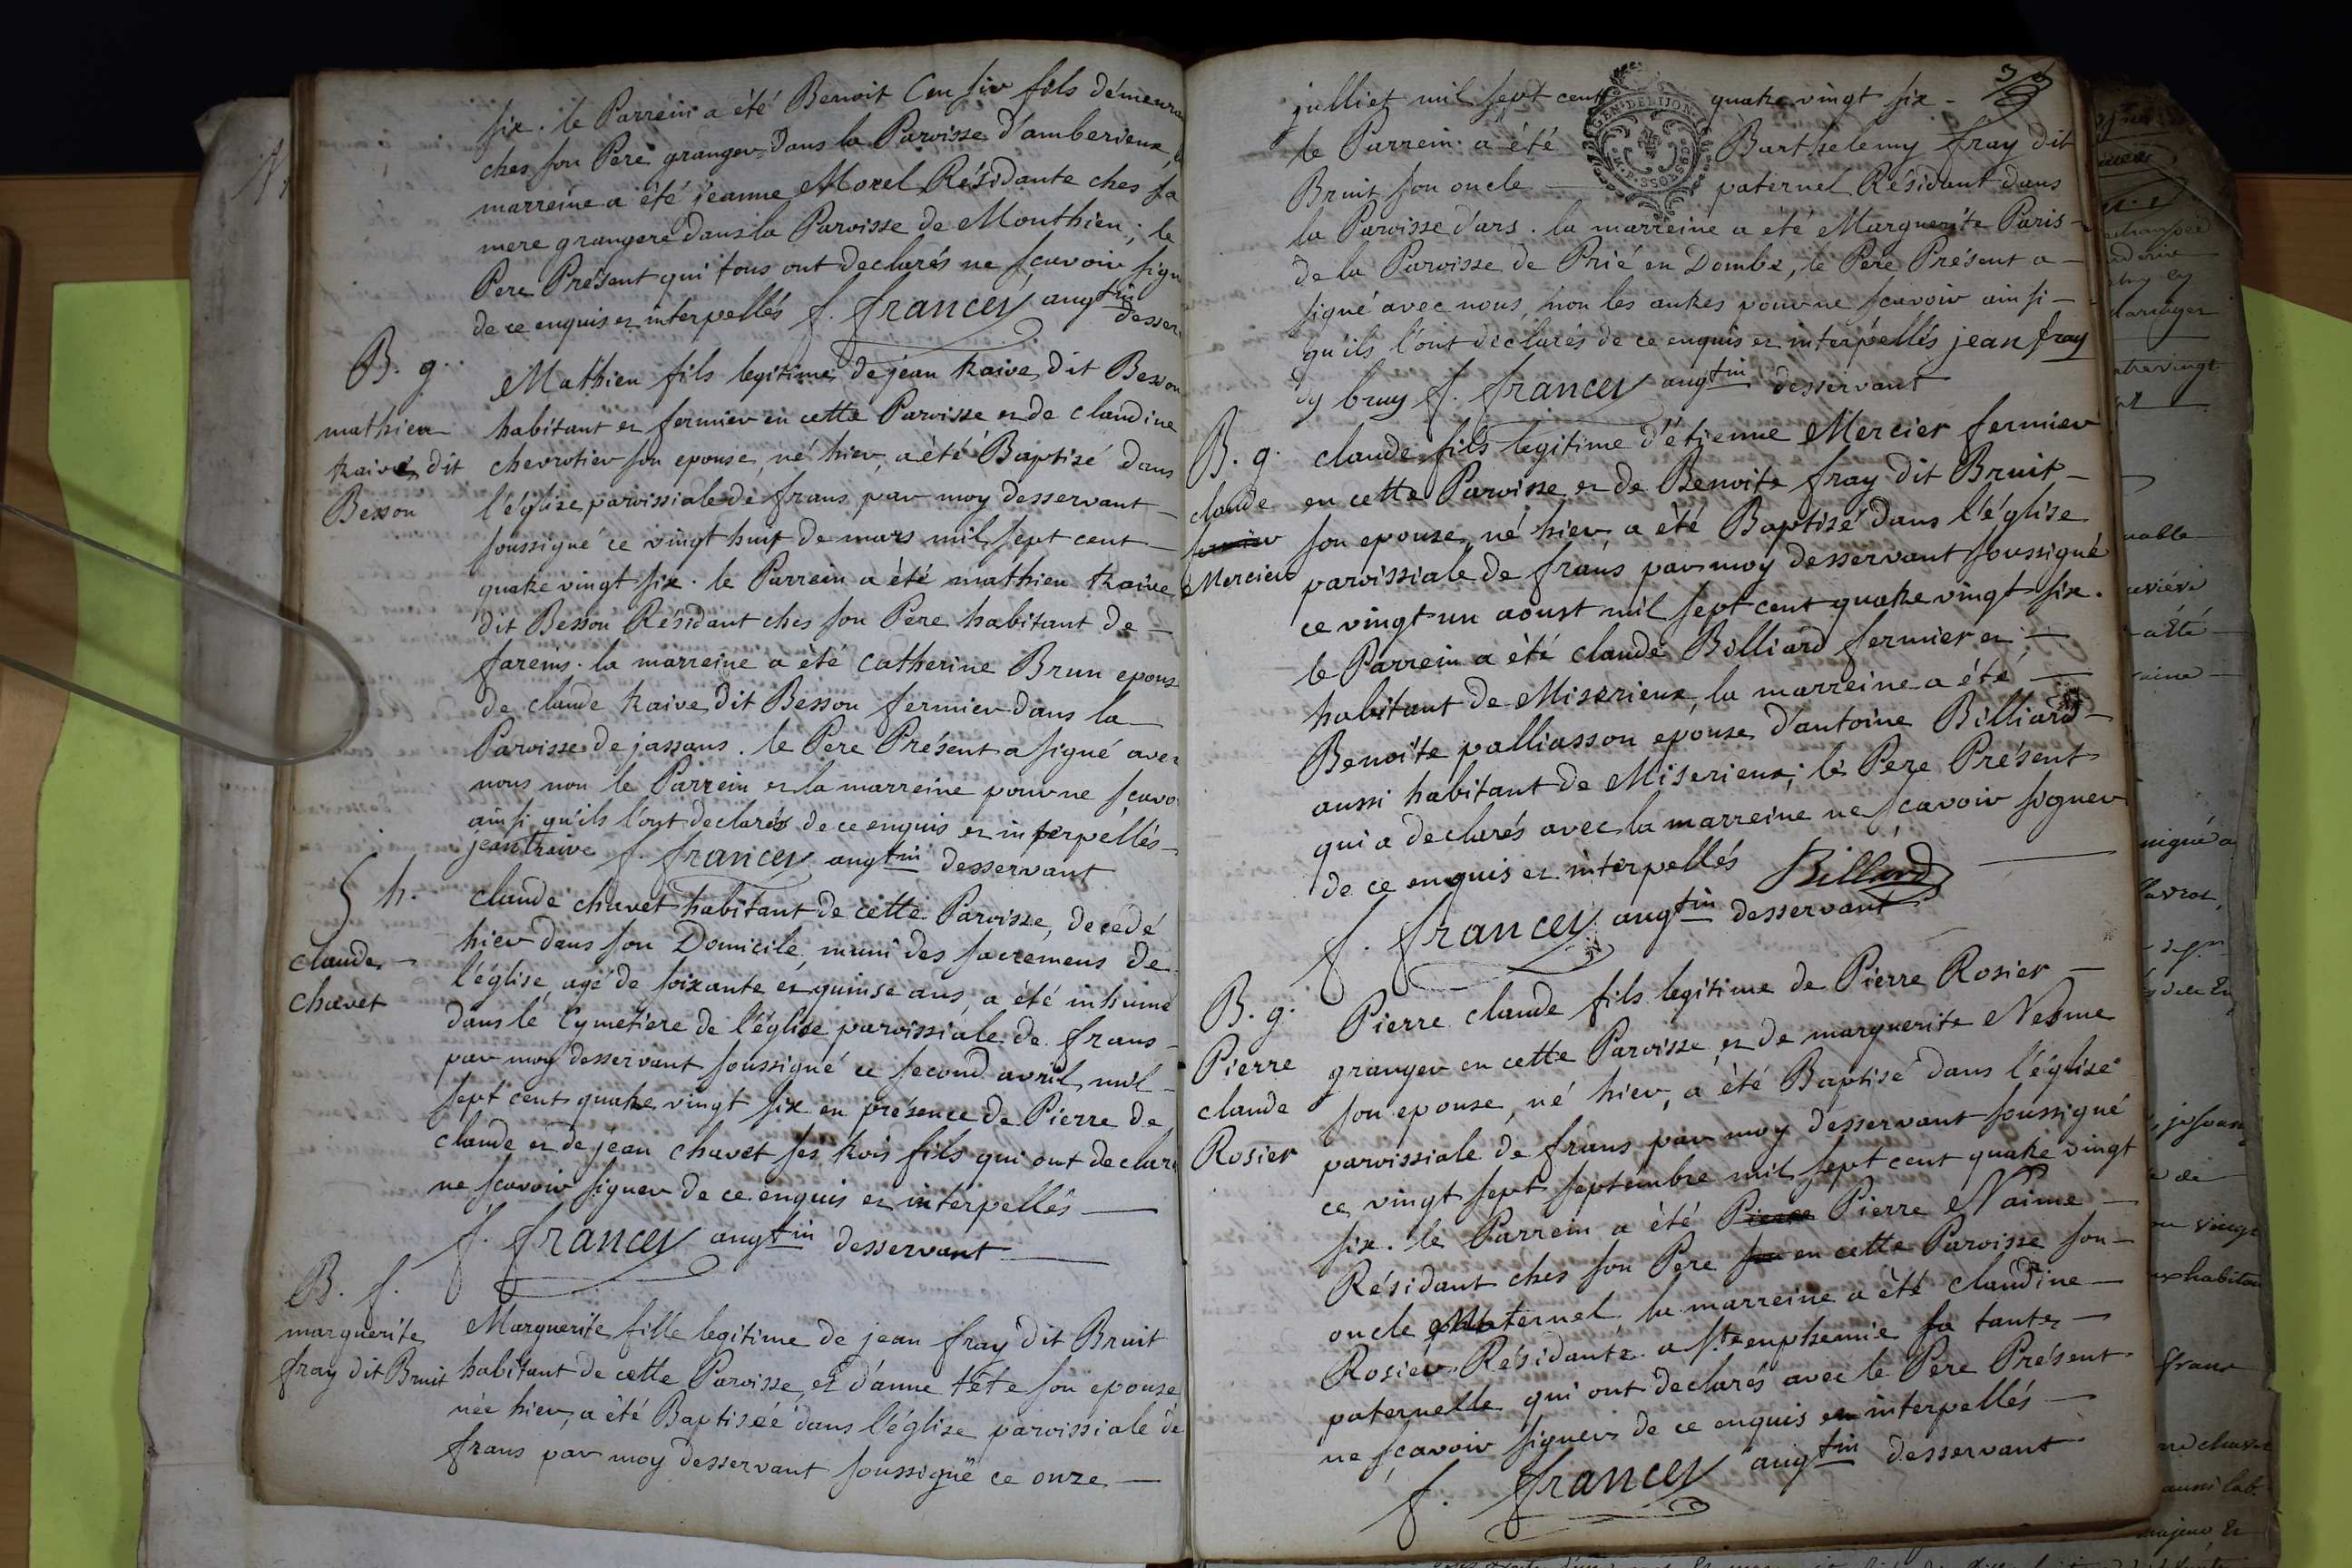 six. le Parrein a été Benoit fils démeura
ches son Pere granger dans la Paroisse d'amberieux,
marreine a été jeanne Morel Résidante ches sa
mere grangere dans la Paroisse de Monthieu; le
Pere Présent qui tous ont declarés ne scavoir sign
de ce enquis et interpellés f. francey augtin desser
B. g.
mathieu
traive dit
Besson
Mathieu fils legitime de jean traive dit Besson
habitant et fermier en cette Paroisse et de claudine
chevrotier son epouse, né hier, a été Baptisé dans
l'église paroissiale de frans par moy desservant
soussigné ce vingt huit de mars mil sept cent
quatre vingt six. le Parrein a été mathieu traive
dit Besson Résidant ches son Pere habitant de
fareins. la marreine a été catherine Brun epous
de claude traive dit Besson fermier dans la
Paroisse de jassans. le Pere Présent a signé avec
nous non le Parrein et la marreine pour ne scavo
ainsi qu'ils l'ont declarés de ce enquis et interpellés
jean traive f. francey augtin desservant
S h.
claude
chavet
claude chavet habitant de cette Paroisse, decédé
hier dans son Domicile, muni des sacremens de
l'église, agé de soixante et quinse ans, a été inhumé
dans le Cymetiere de l'église paroissiale de frans
par moy desservant soussigné ce second avril mil
sept cent quatre vingt six en présence de Pierre de
claude et de jean chavet ses trois fils qui ont declaré
ne scavoir signer de ce enquis et interpellés
f. francey augtin desservant
B. f.
marguerite
fray dit Bruit
Marguerite fille legitime de jean fray dit Bruit
habitant de cette Paroisse, et d'anne tête son epouse
née hier, a été Baptiséé dans l'église paroissiale de
frans par moy desservant soussigné ce onze
julliet mil sept cent quatre vingt six
le Parrein a été Barthelemy fray dit
Bruit son oncle paternel Résidant dans
la Paroisse d'ars. la marreine a été Marguerite Paris
de la Paroisse de Prié en Dombe, le Pere Présent a
signé avec nous, non les autres pour ne scavoir ainsi
qu'ils l'ont declarés de ce enquis et interpellés jean fray
dy bruy f. francey augtin desservant
B. g.
claude
fermier
Mercier
claude fils legitime d'étienne Mercier fermier
en cette Paroisse et de Benoite fray dit Bruit
son epouse, né hier, a été Baptisé dans l'église
paroissiale de frans par moy desservant soussigné
ce vingt un aoust mil sept cent quatre vingt six.
le Parrein a été claude Billiard fermier et
habitant de Miserieux, la marreine a été
Benoite palliasson epouse d'antoine Billiard
aussi habitant de Miserieux; le Pere Présent
qui a declarés avec la marreine ne scavoir signer
de ce enquis et interpellés Billard
f. francey augtin desservant
B. g.
Pierre
claude
Rosier
Pierre claude fils legitime de Pierre Rosier
granger en cette Paroisse et de marguerite Nesme
son epouse, né hier, a été Baptisé dans l'église
paroissiale de frans par moy desservant soussigné
ce vingt sept septembre mil sept cent quatre vingt
six. le Parrein a été Pierre Pierre Naime
Résidant ches son Pere son en cette Paroisse son
oncle Maternel la marreine a été claudine
Rosier Résidante a Ste euphemie sa tante
paternelle qui ont declarés avec le Pere Présent
ne scavoir signer de ce enquis et interpellés
f. francey augtin desservant